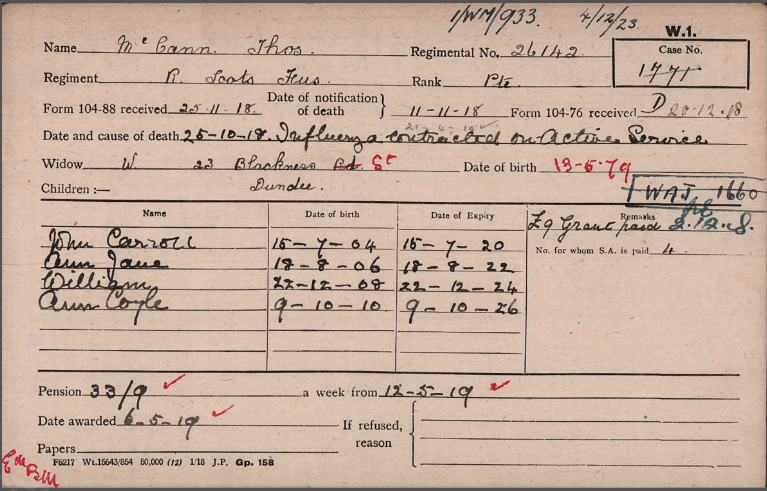 1/WM/933. 4/12/23.
W.1.
Name McCann. Thos. Regimental No. 26142 Case No.
1771
Regiment R. Scots Fus. Rank Pte.
Form 104-88 received 25-11-18. Date of notification of death } 11-11-18 Form 104-76 received D 20-12-18
Date and cause of death 25-10-18. Influenza contracted on Active Service
Widow W. 23 Blackness Rd. St Date of birth 13-5-79
Children :— Dundee. WAJ 1660
Name Date of birth Date of Expiry Remarks
£9 Grant paid 2.12.18.
John Carroll 15-7-04 15-7-20 No. for whom S.A. is paid 4
Ann Jane 18-8-06 18-8-22
William 22-12-08 22-12-24
Ann Coyle 9-10-10 9-10-26
Pension 33/9 a week from 12-5-19
Date awarded 6-5-19 If refused, reason
Papers
F6217 Wt.15643/854 50,000 (12) 1/18 J.P. Gp. 158